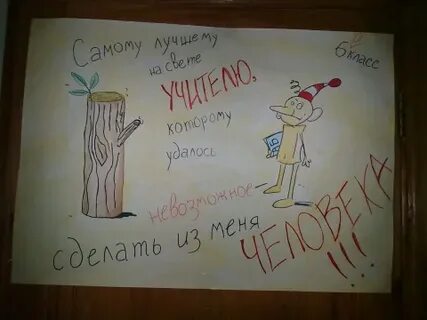 Самому лучшему
на свете
УЧИТЕЛЮ,
которому
удалось
невозможное –
сделать из меня
ЧЕЛОВЕКА
!!!
6 класс